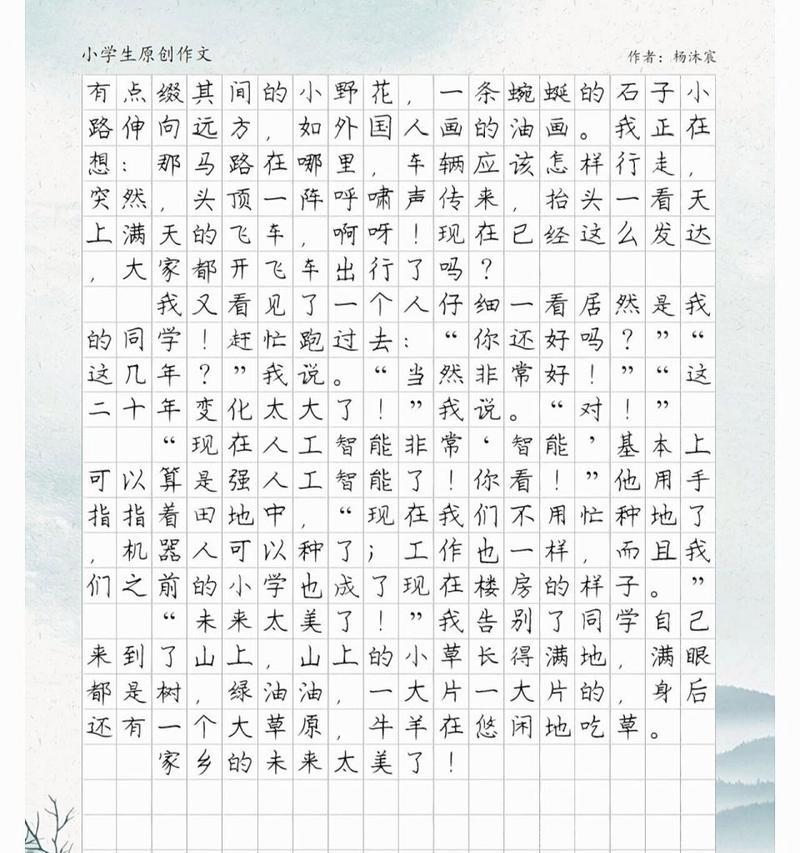 小学生原创作文
作者：杨沐宸
有点缀其间的小野花，一条蜿蜒的石子小
路伸向远方，如外国人画的油画。我正在
想：那马路在哪里，车辆应该怎样行走，
突然，头顶一阵呼啸声传来，抬头一看天
上满天的飞车，啊呀！现在已经这么发达
，大家都开飞车出行了吗？
我又看见了一个人仔细一看居然是我
的同学！赶忙跑过去：“你还好吗？”“
这几年？”我说。“当然非常好！”“这
二十年变化太大了！”我说。“对！”
“现在人工智能非常‘智能’基本上
可以算是强人工智能了！你看！”他用手
指指着田地中，“现在我们不用忙种地了
，机器人可以种了；工作也一样，而且我
们之前的小学也成了现在楼房的样子。”
“未来太美了！”我告别了同学自己
来到了山上，山上的小草长得满地，满眼
都是树，绿油油，一大片一大片的，身后
还有一个大草原，牛羊在悠闲地吃草。
家乡的未来太美了！